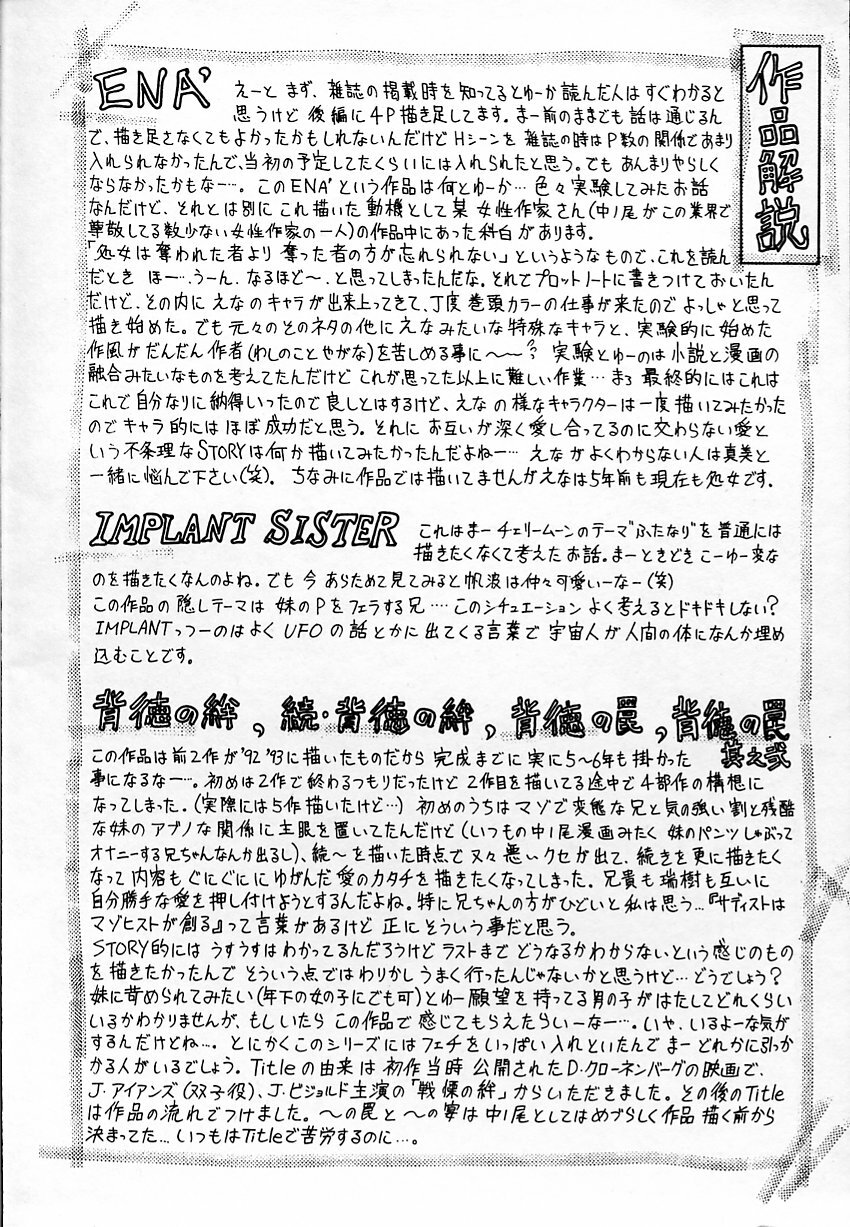 作品解説
ENA' えーと まず、雑誌の掲載時を知ってるとゆーか読んだ人はすぐわかると
思うけど 後編に4P描き足してます。まー前のままでも話は通じるん
で、描き足さなくてもよかったかもしれないんだけど Hシーンを 雑誌の時はP数の関係であまり
入れられなかったんで、当初の予定してたくらいには入れられたと思う。でも あんまりやらしく
ならなかったかもなー…。このENA'という作品は何とゆーか… 色々実験してみたお話
なんだけど、それとは別に これ描いた動機として某 女性作家さん(中ノ尾がこの業界で
尊敬してる数少ない女性作家の一人)の作品中にあった科白があります。
「処女は奪われた者より 奪った者の方が忘れられない」というようなもので、これを読ん
だとき ほー…、うーん、なるほど〜、と思ってしまったんだな。それでプロットノートに書きつけておいたん
だけど、その内に えなのキャラが出来上ってきて、丁度 巻頭カラーの仕事が来たので よっしゃと思って
描き始めた。でも元々のそのネタの他にえなみたいな特殊なキャラと、実験的に始めた
作風がだんだん作者(わしのことやがな)を苦しめる事に〜〜? 実験とゆーのは小説と漫画の
融合みたいなものを考えてたんだけど これが思ってた以上に難しい作業… まぁ 最終的にはこれは
これで自分なりに納得いったので良しとはするけど、えなの様なキャラクターは一度描いてみたかった
のでキャラ的には ほぼ成功だと思う。それに お互いが深く愛し合ってるのに交わらない愛と
いう不条理なSTORYは何か描いてみたかったんだよねー… えなが よくわからない人は真美と
一緒に悩んで下さい(笑)。 ちなみに作品では描いてませんがえなは5年前も現在も処女です。
IMPLANT SISTER これはまーチェリームーンのテーマ“ふたなり”を普通には
描きたくなくて考えたお話。まーときどき こーゆー変な
のを描きたくなんのよね。でも 今 あらためて見てみると帆波は仲々可愛いーなー(笑)
この作品の隠しテーマは 妹のPをフェラる兄….このシチュエーション よく考えるとドキドキしない?
IMPLANTっつーのはよく UFOの話とかに出てくる言葉で 宇宙人が人間の体になんか埋め
込むことです。
背徳の絆, 続・背徳の絆, 背徳の罠, 背徳の罠 其之弐
この作品は前2作が'92 '93に描いたものだから 完成までに実に5〜6年も掛かった
事になるなー…。初めは2作で終わるつもりだったけど 2作目を描いてる途中で4部作の構想に
なってしまった。(実際には5作描いたけど…) 初めのうちはマゾで変態な兄と気の強い割と残酷
な妹のアブノな関係に主眼を置いてたんだけど(いつもの中ノ尾漫画みたく 妹のパンツしゃぶって
オナニーする兄ちゃんなんか出るし)、続〜を描いた時点で又々悪いクセが出て、続きを更に描きたく
なって 内容もぐにぐににゆがんだ愛のカタチを描きたくなってしまった。兄貴も瑞樹も互いに
自分勝手な愛を押し付けようとするんだよね。特に兄ちゃんの方がひどいと私は思う…『サディストは
マゾヒストが創る』って言葉があるけど 正にそういう事だと思う。
STORY的には うすうすは わかってるんだろうけど ラストまで どうなるかわからないという感じのもの
を描きたかったんで そういう点ではわりかし うまく行ったんじゃないかと思うけど…どうでしょう?
妹に苛められてみたい(年下の女の子にでも可)とゆー願望を持ってる男の子がはたしてどれくらい
いるかわかりませんが、もしいたら この作品で感じてもらえたらいーなー…。いや、いるよーな気が
するんだけどね…。とにかくこのシリーズにはフェチをいっぱい入れといたんで まー どれかに引っか
かる人がいるでしょう。Titleの由来は 初作当時 公開されたD・クローネンバーグの映画で、
J・アイアンズ(双子役)、J・ビジョルド主演の「戦慄の絆」からいただきました。その後のTitle
は作品の流れでつけました。〜の罠と〜の宴は中ノ尾としてはめづらしく作品描く前から
決まってた…いつもはTitleで苦労するのに…。